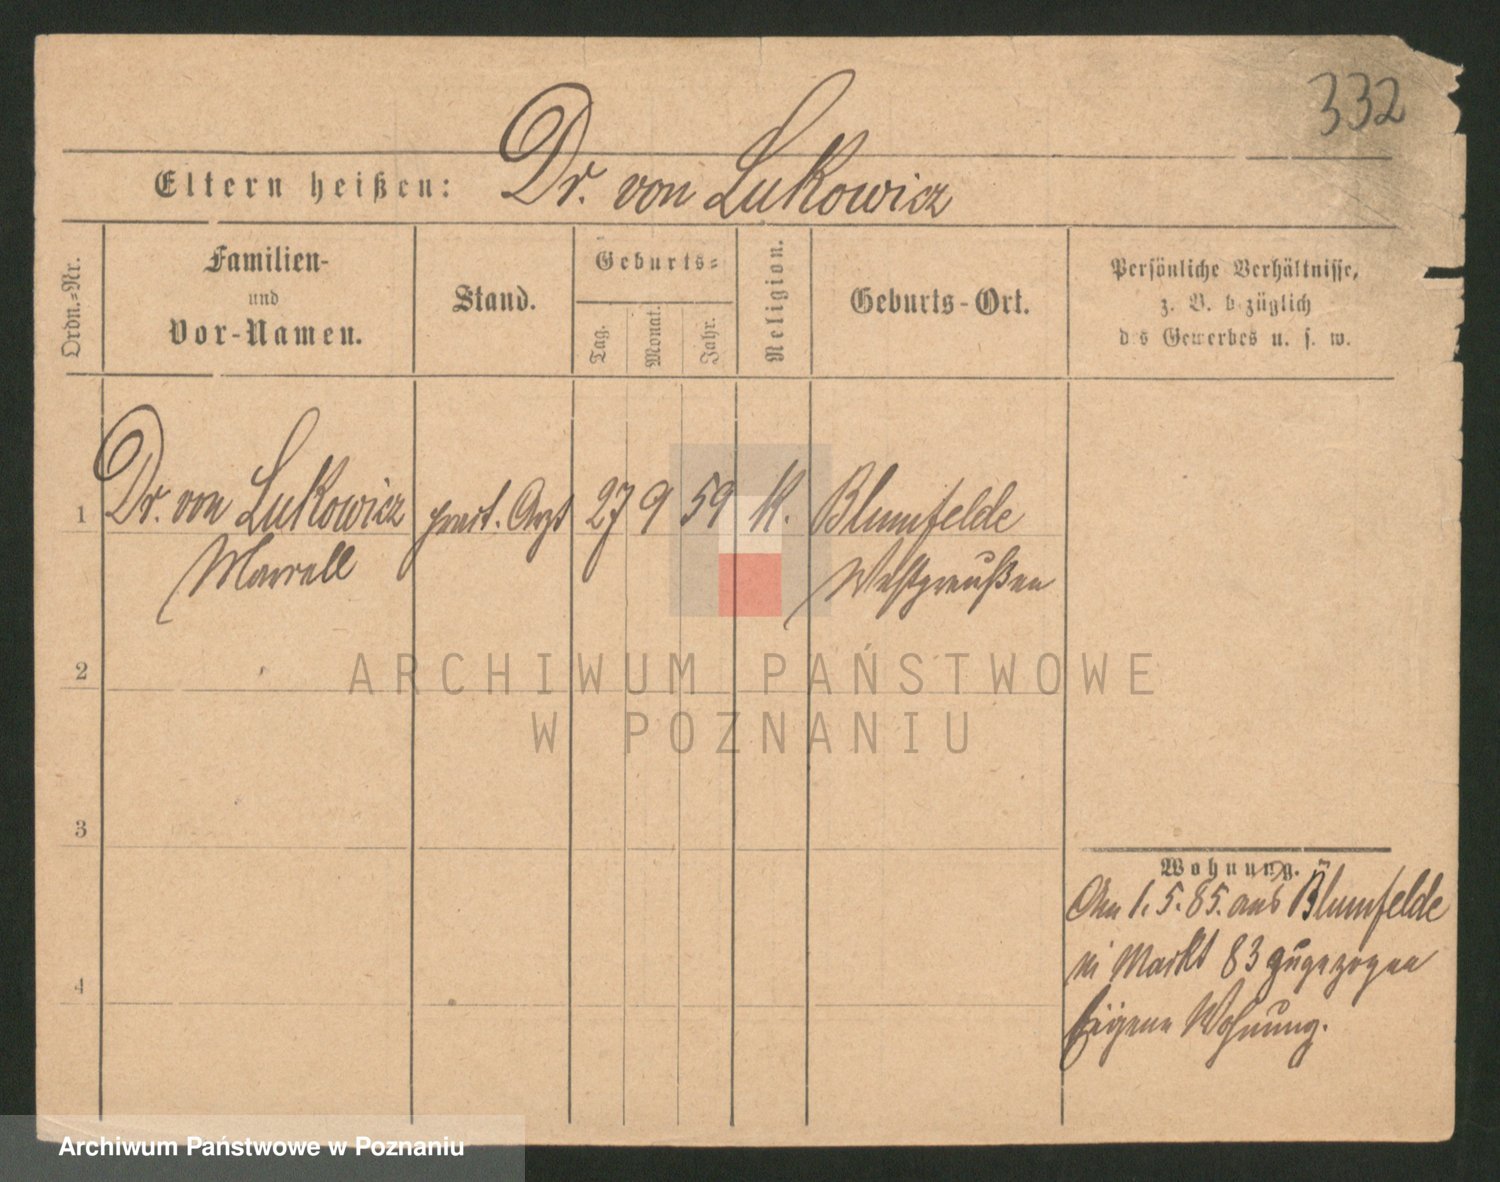 332
Eltern heißen: Dr. von Lukowicz
Ordn.-Nr.
Familien-
und
Vor-Namen.
Stand.
Geburts-
Tag.
Monat.
Jahr.
Religion.
Geburts-Ort.
Persönliche Verhältnisse,
z. B. bezüglich
des Gewerbes u. s. w.
1 Dr. von Lukowicz pract. Arzt 27 9 59 k. Blumfelde
Westpreußen
2
ARCHIWUM PAŃSTWOWE
W POZNANIU
3
4
Wohnung.
Am 1. 5. 85. aus Blumfelde
in Markt 83 zugezogen
Eigene Wohnung.
Archiwum Państwowe w Poznaniu